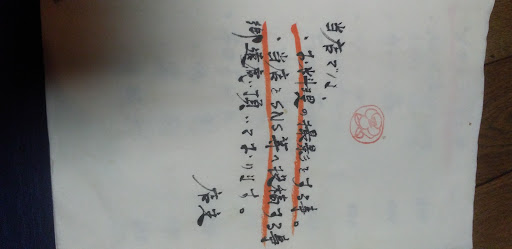 当店では、
・お料理の撮影をする事。
・当店をSNS等へ投稿する事
御遠慮頂いております。
店主